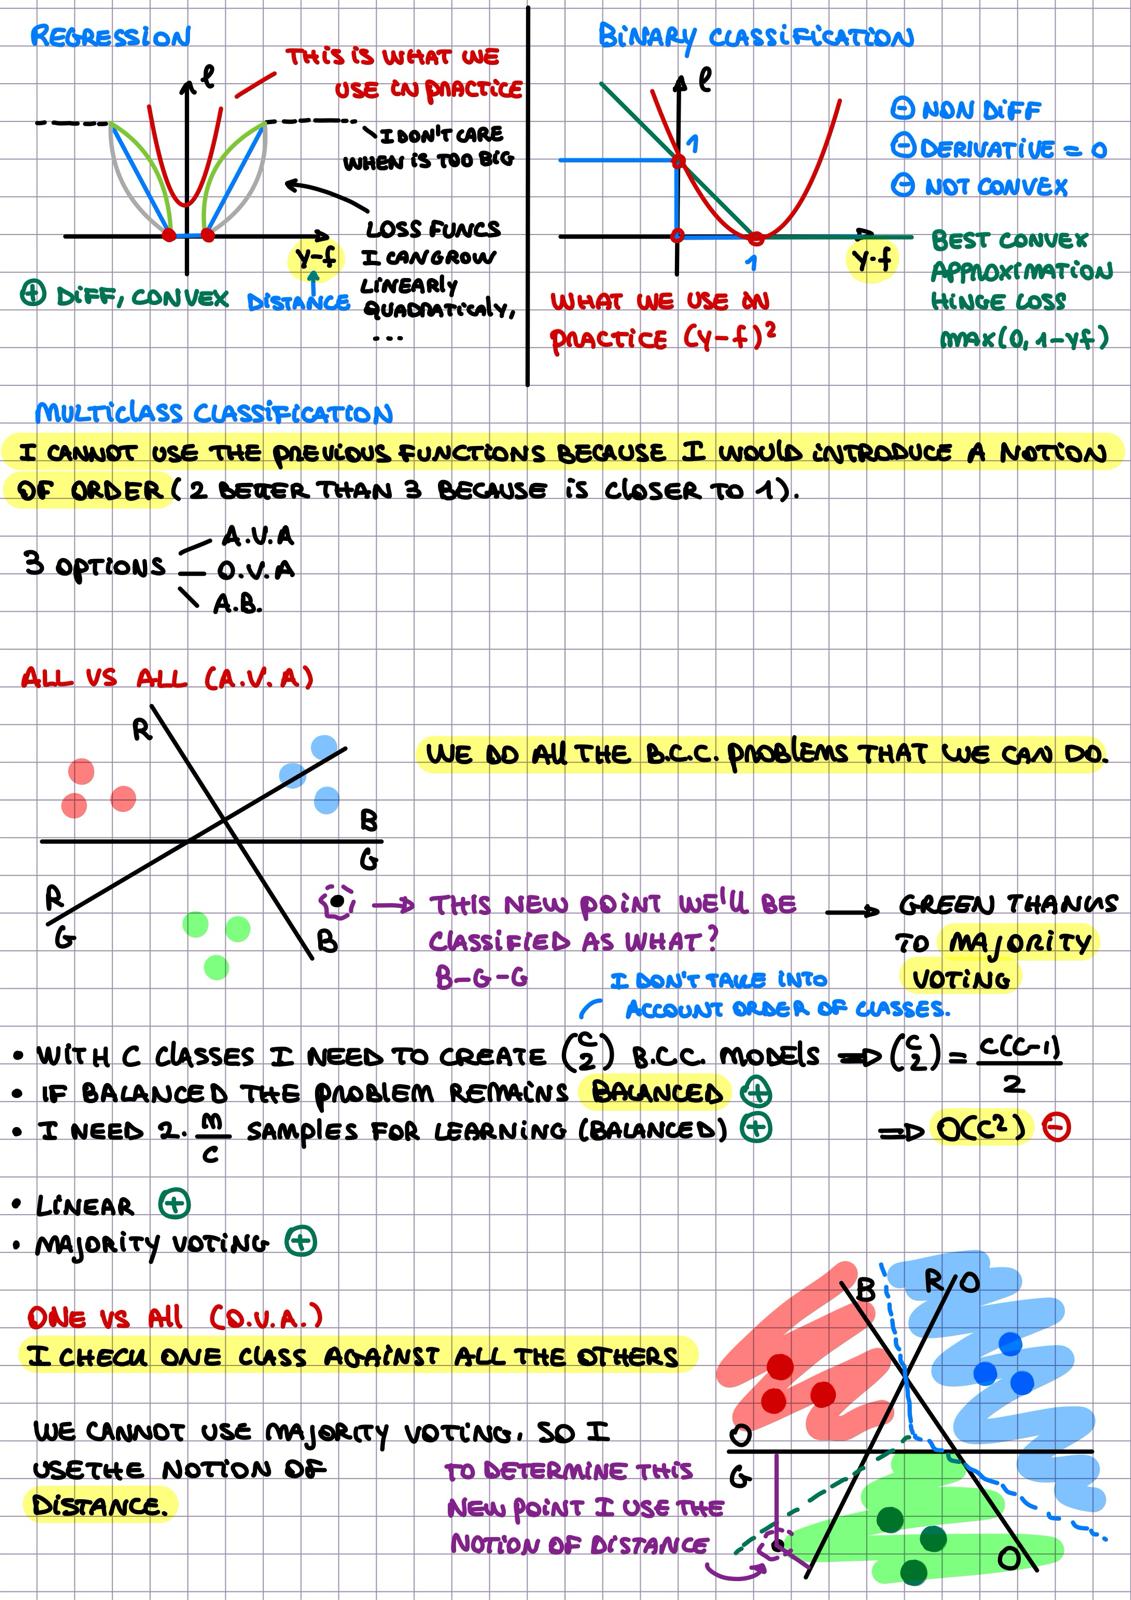 REGRESSION
THIS IS WHAT WE
USE IN PRACTICE
ℓ
I DON'T CARE
WHEN IS TOO BIG
LOSS FUNCS
I CAN GROW
LINEARLY
QUADRATICALY,
...
y-f
⊕ DIFF, CONVEX
DISTANCE
BINARY CLASSIFICATION
ℓ
1
1
y·f
⊖ NON DIFF
⊖ DERIVATIVE = 0
⊖ NOT CONVEX
BEST CONVEX
APPROXIMATION
HINGE LOSS
MAX(0, 1-yf)
WHAT WE USE IN
PRACTICE (y-f)²
MULTICLASS CLASSIFICATION
I CANNOT USE THE PREVIOUS FUNCTIONS BECAUSE I WOULD INTRODUCE A NOTION
OF ORDER (2 BETTER THAN 3 BECAUSE IS CLOSER TO 1).
A.V.A
3 OPTIONS — O.V.A
A.B.
ALL VS ALL (A.V.A)
R
WE DO ALL THE B.C.C. PROBLEMS THAT WE CAN DO.
B
G
R
G
B
THIS NEW POINT WE'LL BE
CLASSIFIED AS WHAT?
B-G-G
GREEN THANKS
TO MAJORITY
VOTING
I DON'T TAKE INTO
ACCOUNT ORDER OF CLASSES.
• WITH C CLASSES I NEED TO CREATE (C 2) B.C.C. MODELS ⇒ (C 2) = C(C-1)/2
• IF BALANCED THE PROBLEM REMAINS BALANCED ⊕
• I NEED 2·m/C SAMPLES FOR LEARNING (BALANCED) ⊕ ⇒ O(C²) ⊖
• LINEAR ⊕
• MAJORITY VOTING ⊕
ONE VS ALL (O.V.A.)
I CHECK ONE CLASS AGAINST ALL THE OTHERS
WE CANNOT USE MAJORITY VOTING. SO I
USE THE NOTION OF
DISTANCE.
TO DETERMINE THIS
NEW POINT I USE THE
NOTION OF DISTANCE
B
R O
O
G
O